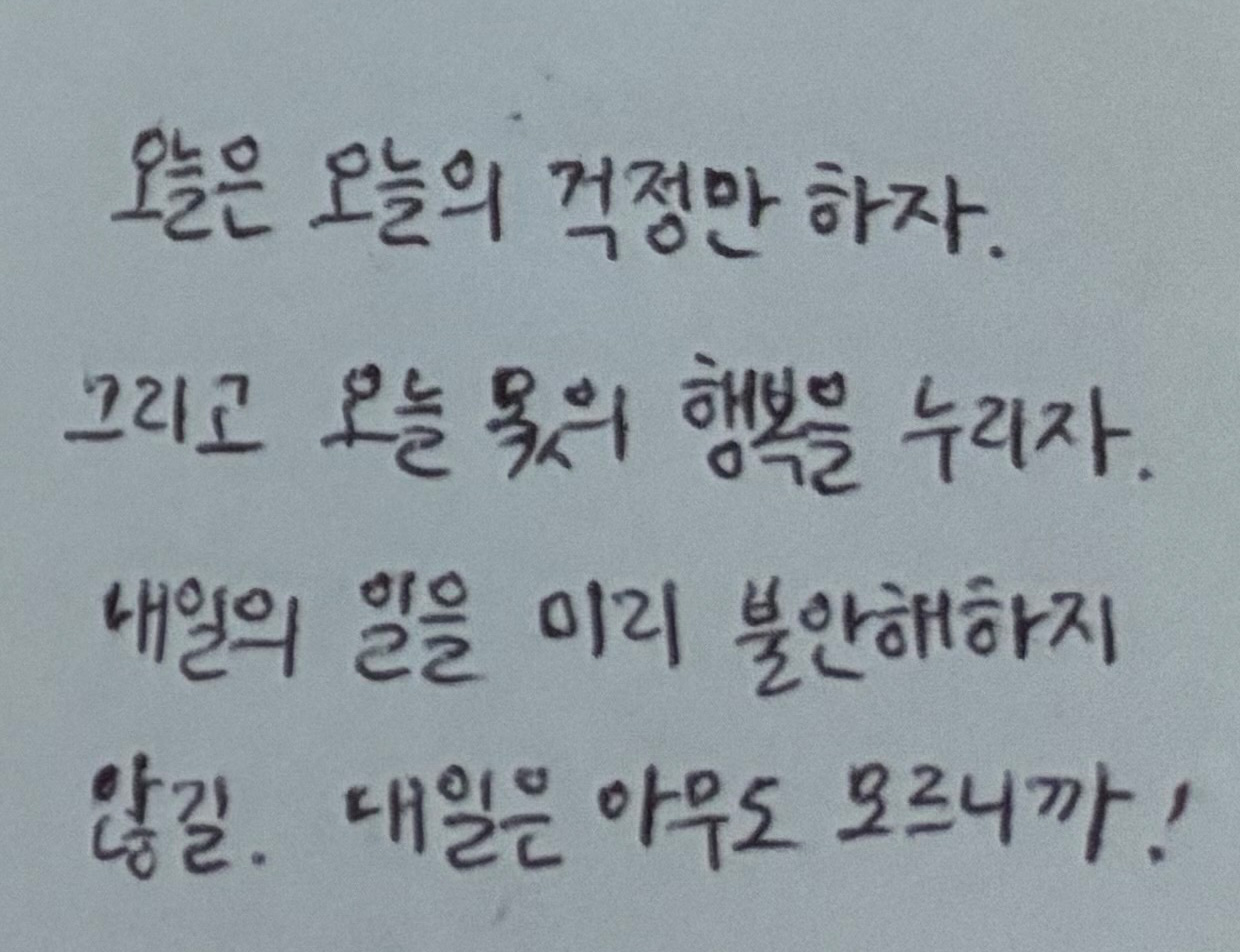 오늘은 오늘의 걱정만 하자.
그리고 오늘 몫의 행복을 누리자.
내일의 일을 미리 불안해하지
않길. 내일은 아무도 모르니까!